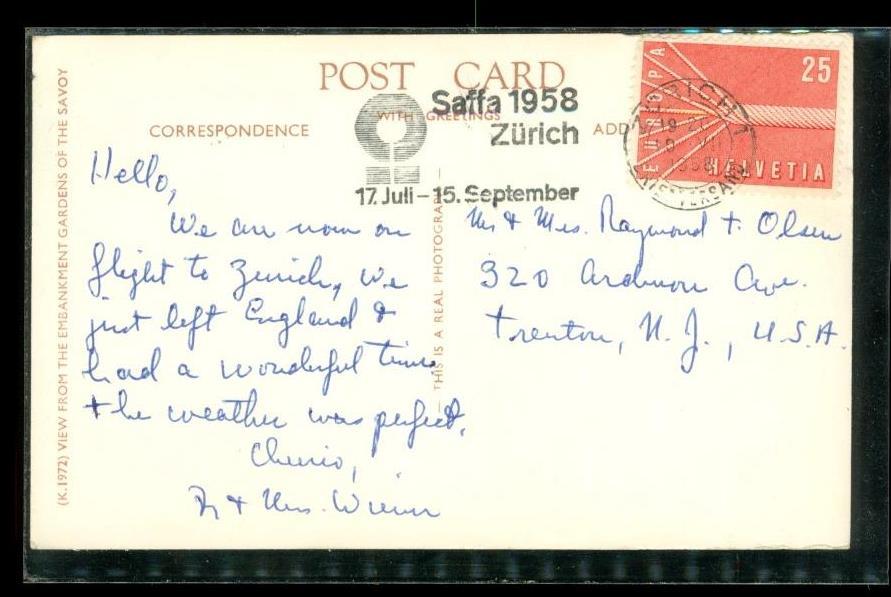 POST CARD
WITH GREETINGS
CORRESPONDENCE
ADD
Saffa 1958
Zürich
17. Juli - 15. September
25
EUROPA
HELVETIA
ZÜRICH 1
1958
BRIEFVERSAND
(K.1972) VIEW FROM THE EMBANKMENT GARDENS OF THE SAVOY
THIS IS A REAL PHOTOGRAPH
Hello,
We are now on
flight to Zurich, We
just left England &
had a wonderful time.
the weather was perfect.
Cheerio,
Dr & Mrs. Wiener
Mr & Mrs. Raymond F. Olsen
320 Ardmore Ave.
Trenton, N. J., U.S.A.